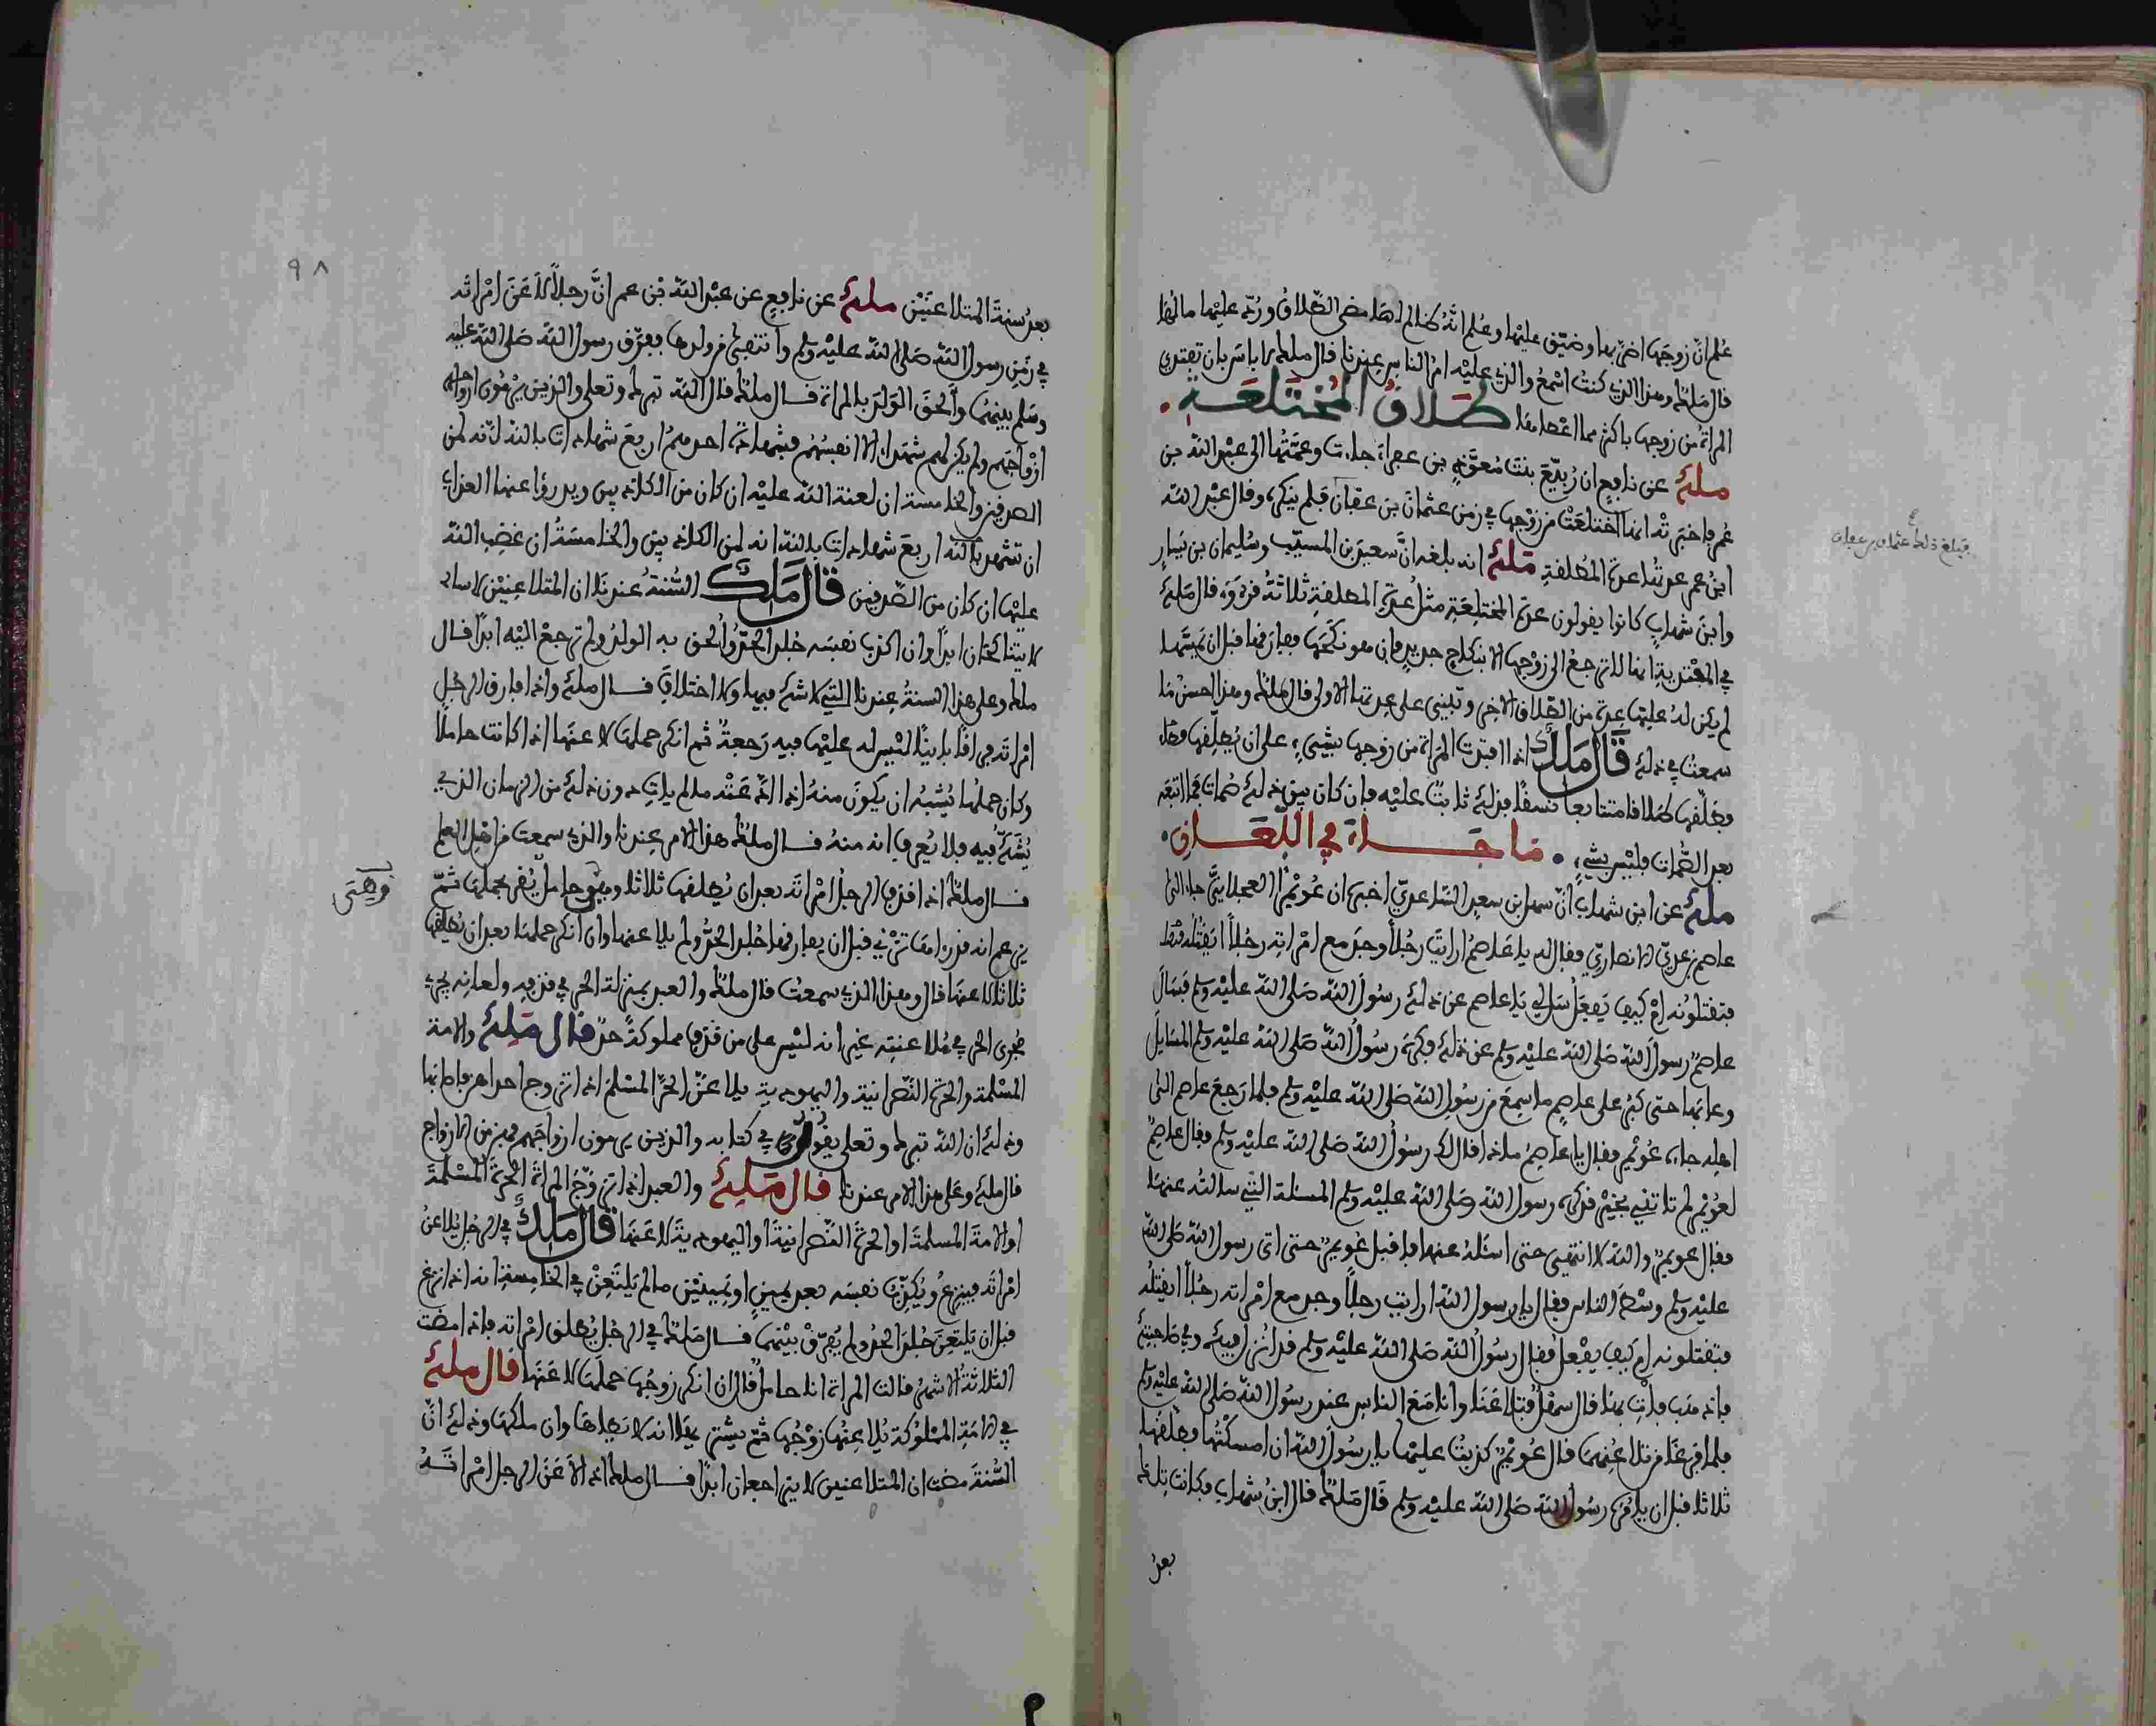 علم ان زوجها اضر بها وضيق عليها وعلم انه ظالم لها مضى الطلاق ورد عليها مالها
قال ملك وهذا الذي كنت اسمع والذي عليه امر الناس عندنا قال ملك لا باس بان تفتدي
المراة من زوجها باكثر مما اعطاها طلاق المختلعة
ملك عن نافع ان ربيع بنت معوذ بن عفراء جاءت وعمتها الى عبد الله بن
عمر فاخبرته انها اختلعت من زوجها في زمن عثمان بن عفان فلم ينكره وقال عبد الله
فبلغ ذلك عثمان بن عفان
ابن عمر عدتها عدة المطلقة ملك انه بلغه ان سعيد بن المسيب وسليمان بن يسار
وابن شهاب كانوا يقولون عدة المختلعة مثل عدة المطلقة ثلاثة قروء قال ملك
في المفتدية انها لا ترجع الى زوجها الا بنكاح جديد فان هو نكحها ففارقها قبل ان يمسها
لم يكن له عليها عدة من الطلاق الاخر وتبني على عدتها الاولى قال ملك وهذا احسن ما
سمعت في ذلك قال ملك اذا افتدت المراة من زوجها بشيء على ان يطلقها
فطلقها طلاقا متتابعا نسقا فذلك ثابت عليه فان كان بين ذلك صمات فما اتبعه
بعد الصمات فليس بشيء ما جاء في اللعان
ملك عن ابن شهاب ان سهل بن سعد الساعدي اخبره ان عويمرا العجلاني جاء الى
عاصم بن عدي الانصاري فقال له يا عاصم ارايت رجلا وجد مع امراته رجلا ايقتله
فتقتلونه ام كيف يفعل سل لي يا عاصم عن ذلك رسول الله صلى الله عليه وسلم فسال
عاصم رسول الله صلى الله عليه وسلم عن ذلك فكره رسول الله صلى الله عليه وسلم المسايل
وعابها حتى كبر على عاصم ما سمع من رسول الله صلى الله عليه وسلم فلما رجع عاصم الى
اهله جاءه عويمر فقال يا عاصم ماذا قال لك رسول الله صلى الله عليه وسلم فقال عاصم
لعويمر لم تاتني بخير قد كره رسول الله صلى الله عليه وسلم المسئلة التي سالته عنها
فقال عويمر والله لا انتهي حتى اسئله عنها فاقبل عويمر حتى اتى رسول الله صلى الله
عليه وسلم وسط الناس فقال يا رسول الله ارايت رجلا وجد مع امراته رجلا ايقتله
فتقتلونه ام كيف يفعل فقال رسول الله صلى الله عليه وسلم قد انزل فيك وفي صاحبتك
فاذهب فات بها قال سهل فتلاعنا وانا مع الناس عند رسول الله صلى الله عليه وسلم
فلما فرغا من تلاعنهما قال عويمر كذبت عليها يا رسول الله ان امسكتها فطلقها
ثلاثا قبل ان يامره رسول الله صلى الله عليه وسلم قال ملك قال ابن شهاب فكانت تلك
بعد
٩٨
بعد سنة المتلاعنين ملك عن نافع عن عبد الله بن عمر ان رجلا لاعن امراته
في زمن رسول الله صلى الله عليه وسلم وانتفى من ولدها ففرق رسول الله صلى الله عليه
وسلم بينهما والحق الولد بالمراة قال ملك قال الله تبرك وتعلى والذين يرمون ازواجهم
ازواجهم ولم يكن لهم شهداء الا انفسهم فشهادة احدهم اربع شهادات بالله انه لمن
الصدقين والخامسة ان لعنة الله عليه ان كان من الكاذبين ويدرؤا عنها العذاب
ان تشهد بالله اربع شهادات بالله انه لمن الكاذبين والخامسة ان غضب الله
عليها ان كان من الصدقين قال ملك السنة عندنا ان المتلاعنين
لا يتناكحان ابدا وان اكذب نفسه جلد الحد والحق به الولد ولم ترجع اليه ابدا قال
ملك وعلى هذا السنة عندنا التي لا شك فيها ولا اختلاف قال ملك واذا فارق الرجل
امراته فراقا باتا ليس له عليها فيه رجعة ثم انكر حملها لاعنها اذا كانت حاملا
وكان حملها يشبه ان يكون منه اذا ادعته ما لم يات دون ذلك من الزمان الذي
يشك فيه فلا يعرف انه منه قال ملك هذا الامر عندنا والذي سمعت من اهل العلم
قال ملك اذا قذف الرجل امراته بعد ان يطلقها ثلاثا وهي حامل يقر بحملها ثم
وهي
يزعم انه قد راها تزني قبل ان يفارقها جلد الحد ولم يلاعنها وان انكر حملها بعد ان يطلقها
ثلاثا لاعنها قال وهذا الذي سمعت قال ملك والعبد بمنزلة الحر في قذفه ولعانه يجري
مجرى الحر في ملاعنته غير انه ليس على من قذف مملوكة حد قال ملك والامة
المسلمة والحرة النصرانية واليهودية يلاعن الحر المسلم اذا تزوج احداهن فاصابها
وذلك ان الله تبرك وتعلى يقول في كتابه والذين يرمون ازواجهم فهن من الازواج
قال ملك وعلى هذا الامر عندنا قال ملك والعبد اذا تزوج المراة الحرة المسلمة
او الامة المسلمة او الحرة النصرانية او اليهودية لاعنها قال ملك في الرجل يلاعن
امراته فينزع ويكذب نفسه بعد يمين او يمينين ما لم يلتعن في الخامسة انه اذا نزع
قبل ان يلتعن جلد الحد ولم يفرق بينهما قال ملك في الرجل يطلق امراته فاذا مضت
الثلاثة الاشهر قالت المراة انا حامل قال ان انكر زوجها حملها لاعنها قال ملك
في الامة المملوكة يلاعنها زوجها ثم يشتريها انه لا يطاها وان ملكها وذلك ان
السنة مضت ان المتلاعنين لا يتراجعان ابدا قال ملك اذا لاعن الرجل امراته